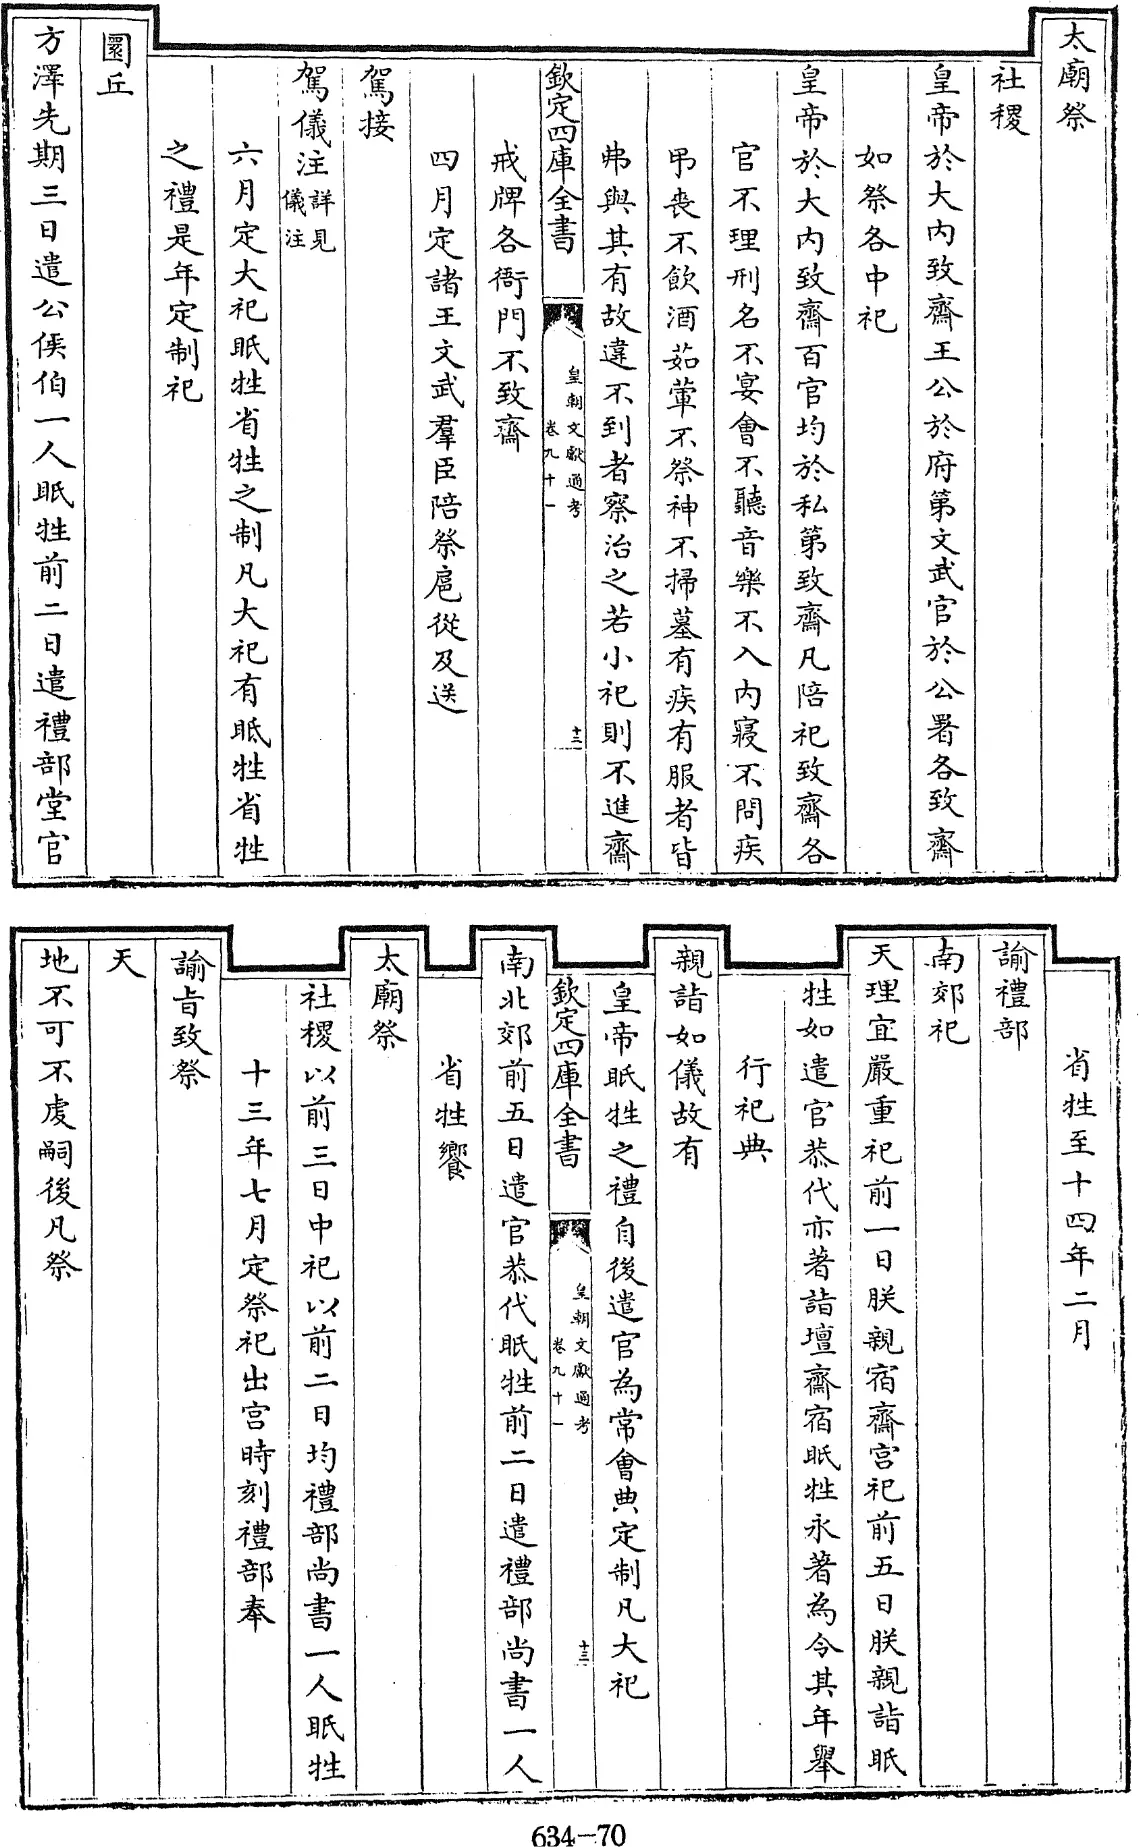 太廟祭
社稷
皇帝於大内致齋王公於府第文武官於公署各致齋
如祭各中祀
皇帝於大内致齋百官均於私第致齋凡陪祀致齋各
官不理刑名不宴會不聽音樂不入内寢不問疾
弔喪不飲酒茹葷不祭神不掃墓有疾有服者皆
弗與其有故違不到者察治之若小祀則不進齋
欽定四庫全書
皇朝文獻通考
卷九十一
十三
戒牌各衙門不致齋
四月定諸王文武羣臣陪祭扈從及送
駕接
駕儀注詳見儀注
六月定大祀眡牲省牲之制凡大祀有眡牲省牲
之禮是年定制祀
圜丘
方澤先期三日遣公侯伯一人眡牲前二日遣禮部堂官
省牲至十四年二月
諭禮部
南郊祀
天理宜嚴重祀前一日朕親宿齋宫祀前五日朕親詣眡
牲如遣官恭代亦著詣壇齋宿眡牲永著為令其年舉
行祀典
親詣如儀故有
皇帝眡牲之禮自後遣官為常會典定制凡大祀
欽定四庫全書
皇朝文獻通考
卷九十一
十三
南北郊前五日遣官恭代眡牲前二日遣禮部尚書一人
省牲饗
太廟祭
社稷以前三日中祀以前二日均禮部尚書一人眡牲
十三年七月定祭祀出宫時刻禮部奉
諭旨致祭
天
地不可不虔嗣後凡祭
634-70